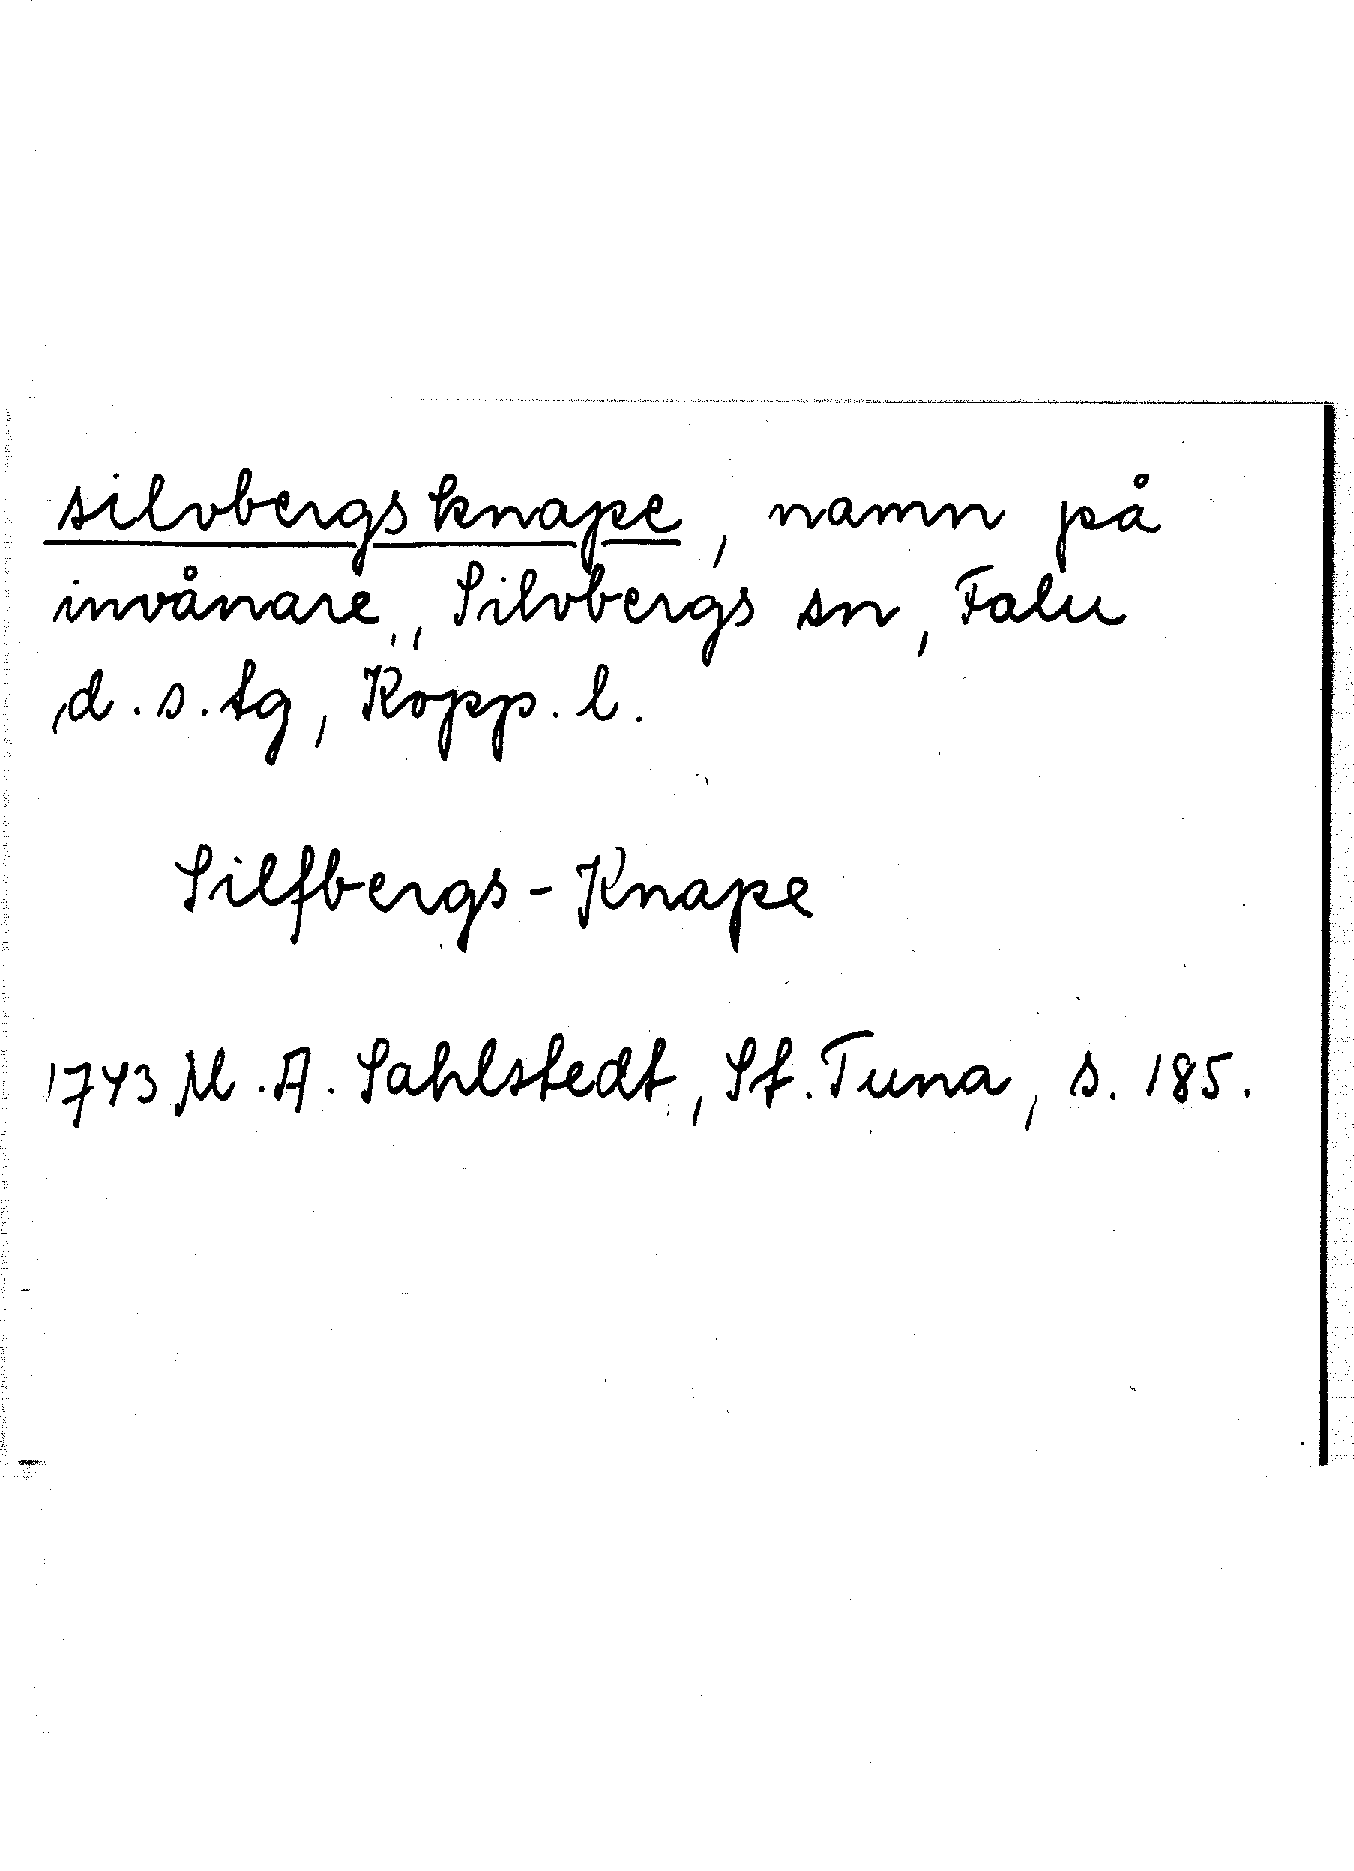 silvbergsknape, namn på
invånare, Silvbergs sn, Falu
d.s.tg, Kopp. l.
Silfbergs-Knape
1743 M.A. Sahlstedt, St. Tuna, s. 185.